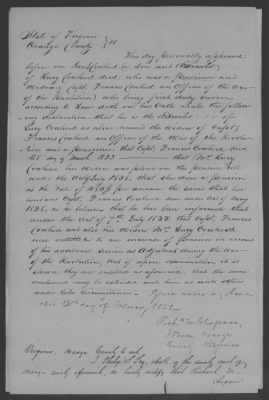 State of Virginia
Orange County } ss
This day personally appeared
before me Jas. Cowherd a Son and
of Lucy Cowherd decd. who was a Pensioner and
Widow of Capt. Francis Cowherd an Officer of the War
of the Revolution) who being first duly sworn
according to law doth on his Oath make the follow-
ing declaration, that he is the
of
Lucy Cowherd as above named the Widow of Capt.
Francis Cowherd an Officer of the War of the Revolu-
tion and a pensioner, that Capt. Francis Cowherd died
the 25 day of March 1833 that Mrs. Lucy
Cowherd his Widow was placed on the Pension roll
under the Act July 1838. that she drew a Pension
at the rate of per annum the same that her
husband Capt. Francis Cowherd drew under Act of May
1828, as he believes that he has been informed that
under the Act of 7th July 1838 that Capt. Francis
Cowherd and also his Widow Mrs. Lucy Cowherd
were entitled to an increase of Pension on account
of his additional service as Adjutant during the War
of the Revolution, and if upon examination, it is
shown they are entitled as aforesaid, that the same
may be extended unto him as unto others
under like Circumstances. Given under my hand
this 12th day of February 1851
Richd. M. Chapman,
J. Peace, Orange
County Virginia
Virginia, Orange County to wit
I, Philip S. Fry, clerk of the county court of
Orange county aforesaid, do hereby certify that Richard M.
Chapman